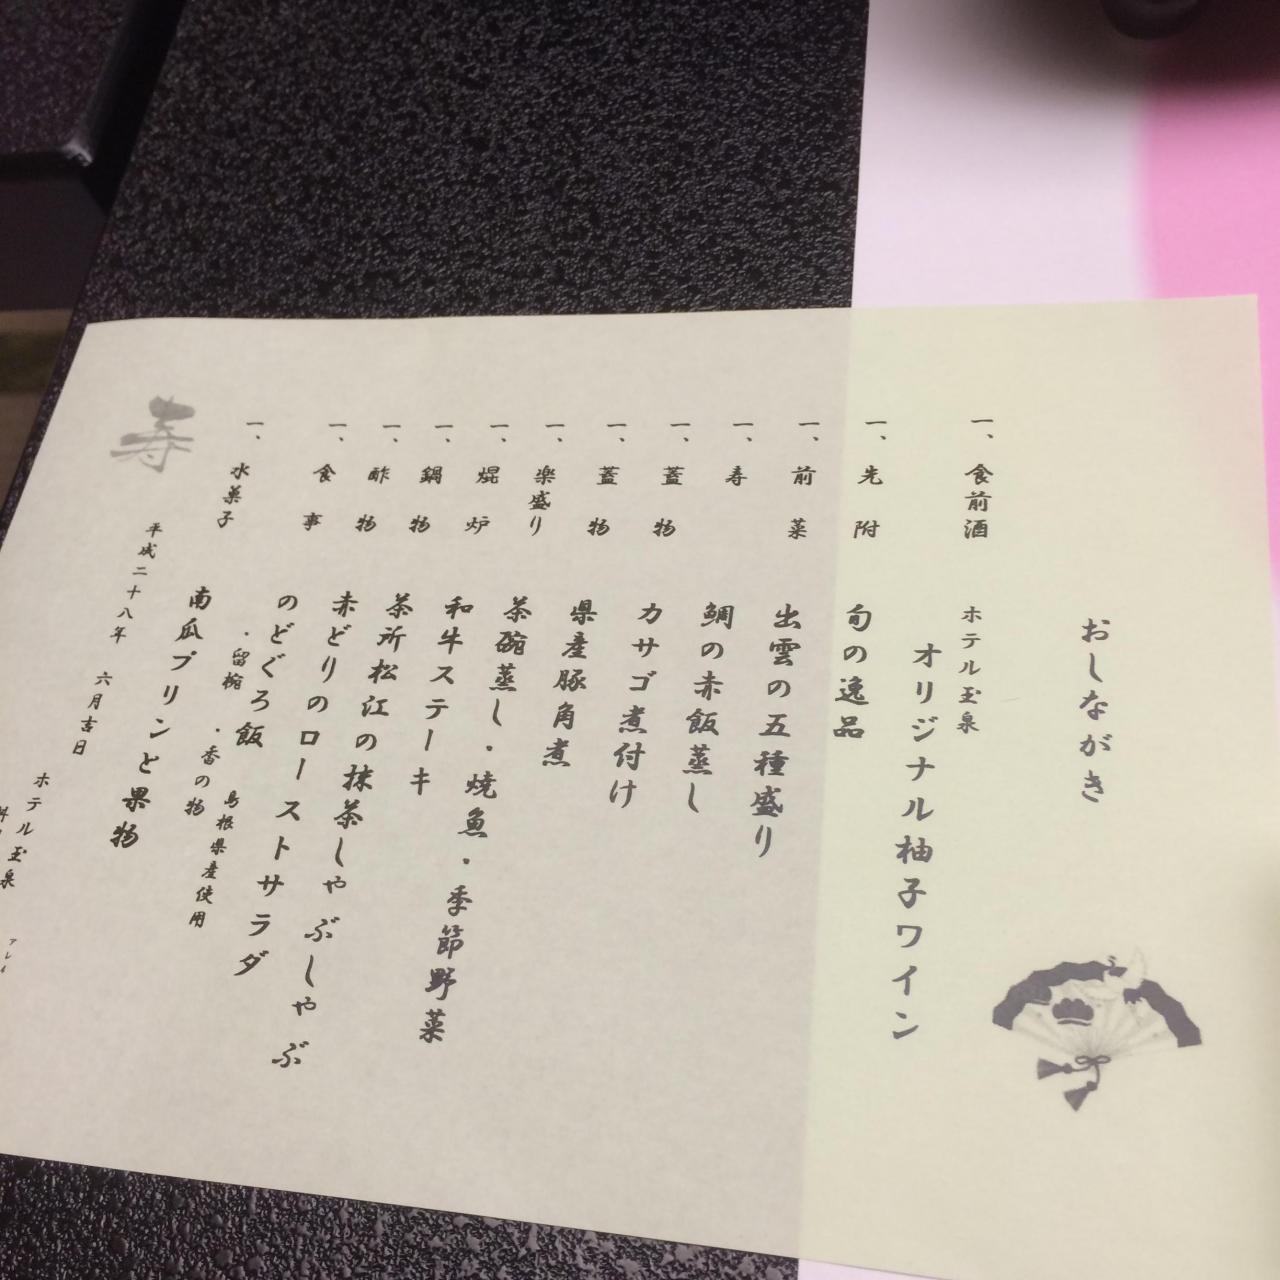 おしながき
一、食前酒 ホテル玉泉
オリジナル柚子ワイン
一、先附 旬の逸品
一、前菜 出雲の五種盛り
一、寿 鯛の赤飯蒸し
一、蓋物 カサゴ煮付け
一、蓋物 県産豚角煮
一、楽盛り 茶碗蒸し・焼魚・季節野菜
一、焜炉 和牛ステーキ
一、鍋物 茶所松江の抹茶しゃぶしゃぶ
一、酢物 赤どりのローストサラダ
一、食事 のどぐろ飯 島根県産使用
・留椀 ・香の物
一、水菓子 南瓜プリンと果物
寿
平成二十八年 六月吉日
ホテル玉泉